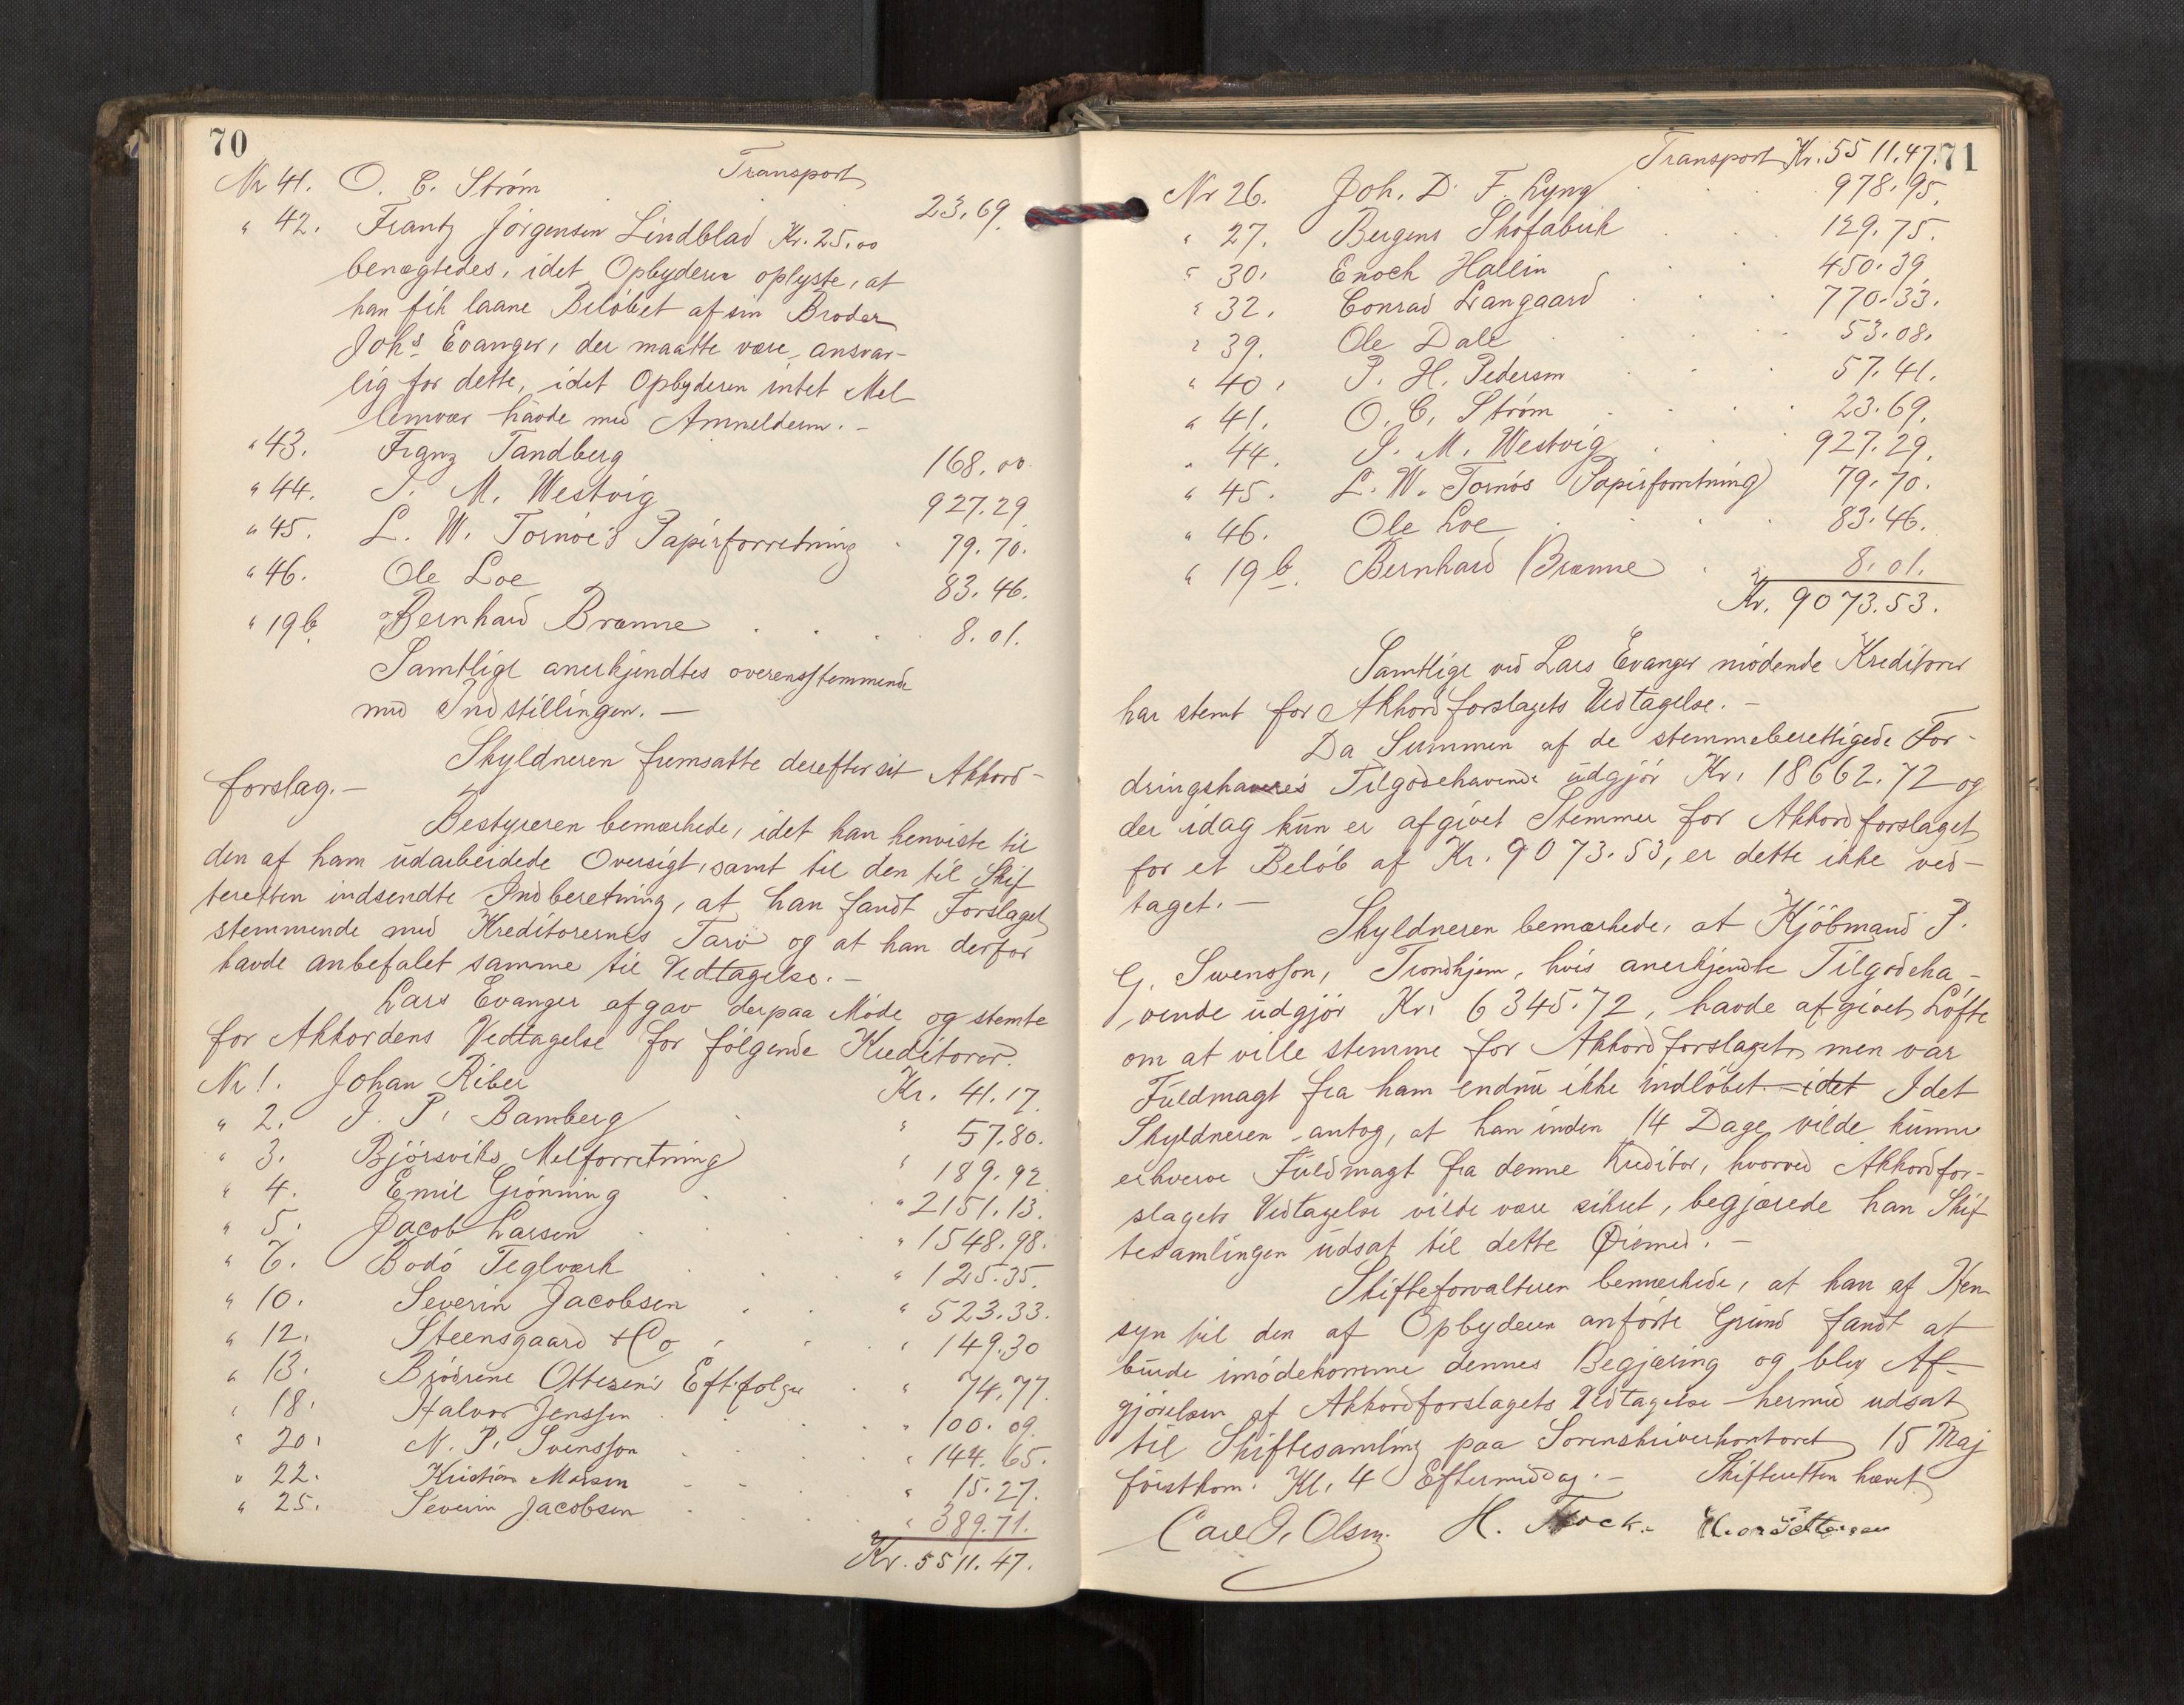 70
Transport
Nr 41. O. C. Strøm . . . 23.69.
" 42. Frantz Jørgensen Lindblad Kr. 25.00
benægtedes, idet Opbyderen oplyste, at
han fik laane Beløbet af sin Broder
Johs Evanger, der maatte være ansvar-
lig for dette, idet Opbyderen intet Mel
lemvær havde med Anmelderen. -
" 43. Franz Tandberg 168.00
" 44. J. M. Westvig 927.29
" 45. L. W. Tornöe's Papirforretning . 79.70.
" 46. Ole Loe 83.46.
" 19 b. Bernhard Brænne . . . . 8.01.
Samtlige anerkjendtes overensstemmende
med Indstillingen. -
Skyldneren fremsatte derefter sit Akkord-
forslag. -
Bestyreren bemærkede, idet han henviste til
den af ham udarbeidede Oversigt, samt til den til Skif
teretten indsendte Indberetning, at han fandt Forslaget
stemmende med Kreditorernes Tarv og at han derfor
havde anbefalet samme til Vedtagelse. -
Lars Evanger afgav derpaa Møde og stemte
for Akkordens Vedtagelse for følgende Kreditorer.
Nr 1. Johan Riber Kr. 41.17.
" 2. J. P. Bamberg . " 57.80.
" 3. Bjørsviks Melforretning " 189.92
" 4. Emil Grønning . . " 2151.13.
" 5. Jacob Larsen . . " 1548.98.
" 6. Bodö Teglværk . . . " 125.35.
" 10. Severin Jacobsen . . " 523.33.
" 12. Steensgaard & Co . . " 149.30
" 13. Brödrene Ottesens Eftfølger . " 74.77.
" 18. Halvor Jenssen . . . " 100.09.
" 20. N. P. Svensson . . . " 144.65.
" 22. Kristian Marsen . . . " 15.27.
" 25. Severin Jacobsen . . . " 389.71.
Kr. 5511.47.
71
Transport Kr. 5511.47.
Nr 26. Joh. D. F. Lyng . . . 978.95.
" 27. Bergens Skofabrik . . 129.75.
" 30. Enoch Hallin . . . 450.39.
" 32. Conrad Langaard . . . 770.33.
" 39. Ole Dall . . . 53.08.
" 40. P. H. Pedersen . . . 57.41.
" 41. O. C. Strøm . . . . 23.69.
" 44. J. M. Westvig . . 927.29.
" 45. L. W. Tornös Papirforretning 79.70.
" 46. Ole Loe . . . . 83.46.
" 19 b. Bernhard Brænne . . 8.01.
Kr. 9073.53.
Samtlige ved Lars Evanger mødende Kreditorer
har stemt for Akkordforslagets Vedtagelse. -
Da Summen af de stemmeberettigede For-
dringshaveres Tilgodehavende udgjør Kr. 18662.72 og
der idag kun er afgivet Stemmer for Akkordforslaget
for et Beløb af Kr. 9073.53, er dette ikke ved-
taget. -
Skyldneren bemærkede, at Kjøbmand P.
G. Swensson, Trondhjem, hvis anerkjendte Tilgodeha-
vende udgjør Kr. 6345.72, havde afgivet Løfte
om at ville stemme for Akkordforslaget, men var
Fuldmagt fra ham endnu ikke indløbet. idet Idet
Skyldneren antog, at han inden 14 Dage vilde kunne
erhverve Fuldmagt fra denne Kreditor, hvorved Akkordfor-
slagets Vedtagelse vilde være sikret, begjærede han Skif
tesamlingen udsat til dette Øiemed. -
Skifteforvalteren bemærkede, at han af Hen
syn til den af Opbyderen anførte Grund fandt at
burde imødekomme dennes Begjæring og blev Af-
gjørelsen af Akkordforslagets Vedtagelse hermed udsat
til Skiftesamling paa Sorenskriverkontoret 15 Maj
førstkom. Kl. 4 Eftermiddag. - Skifteretten hævet
Carl J. Olsen. H. Fock.